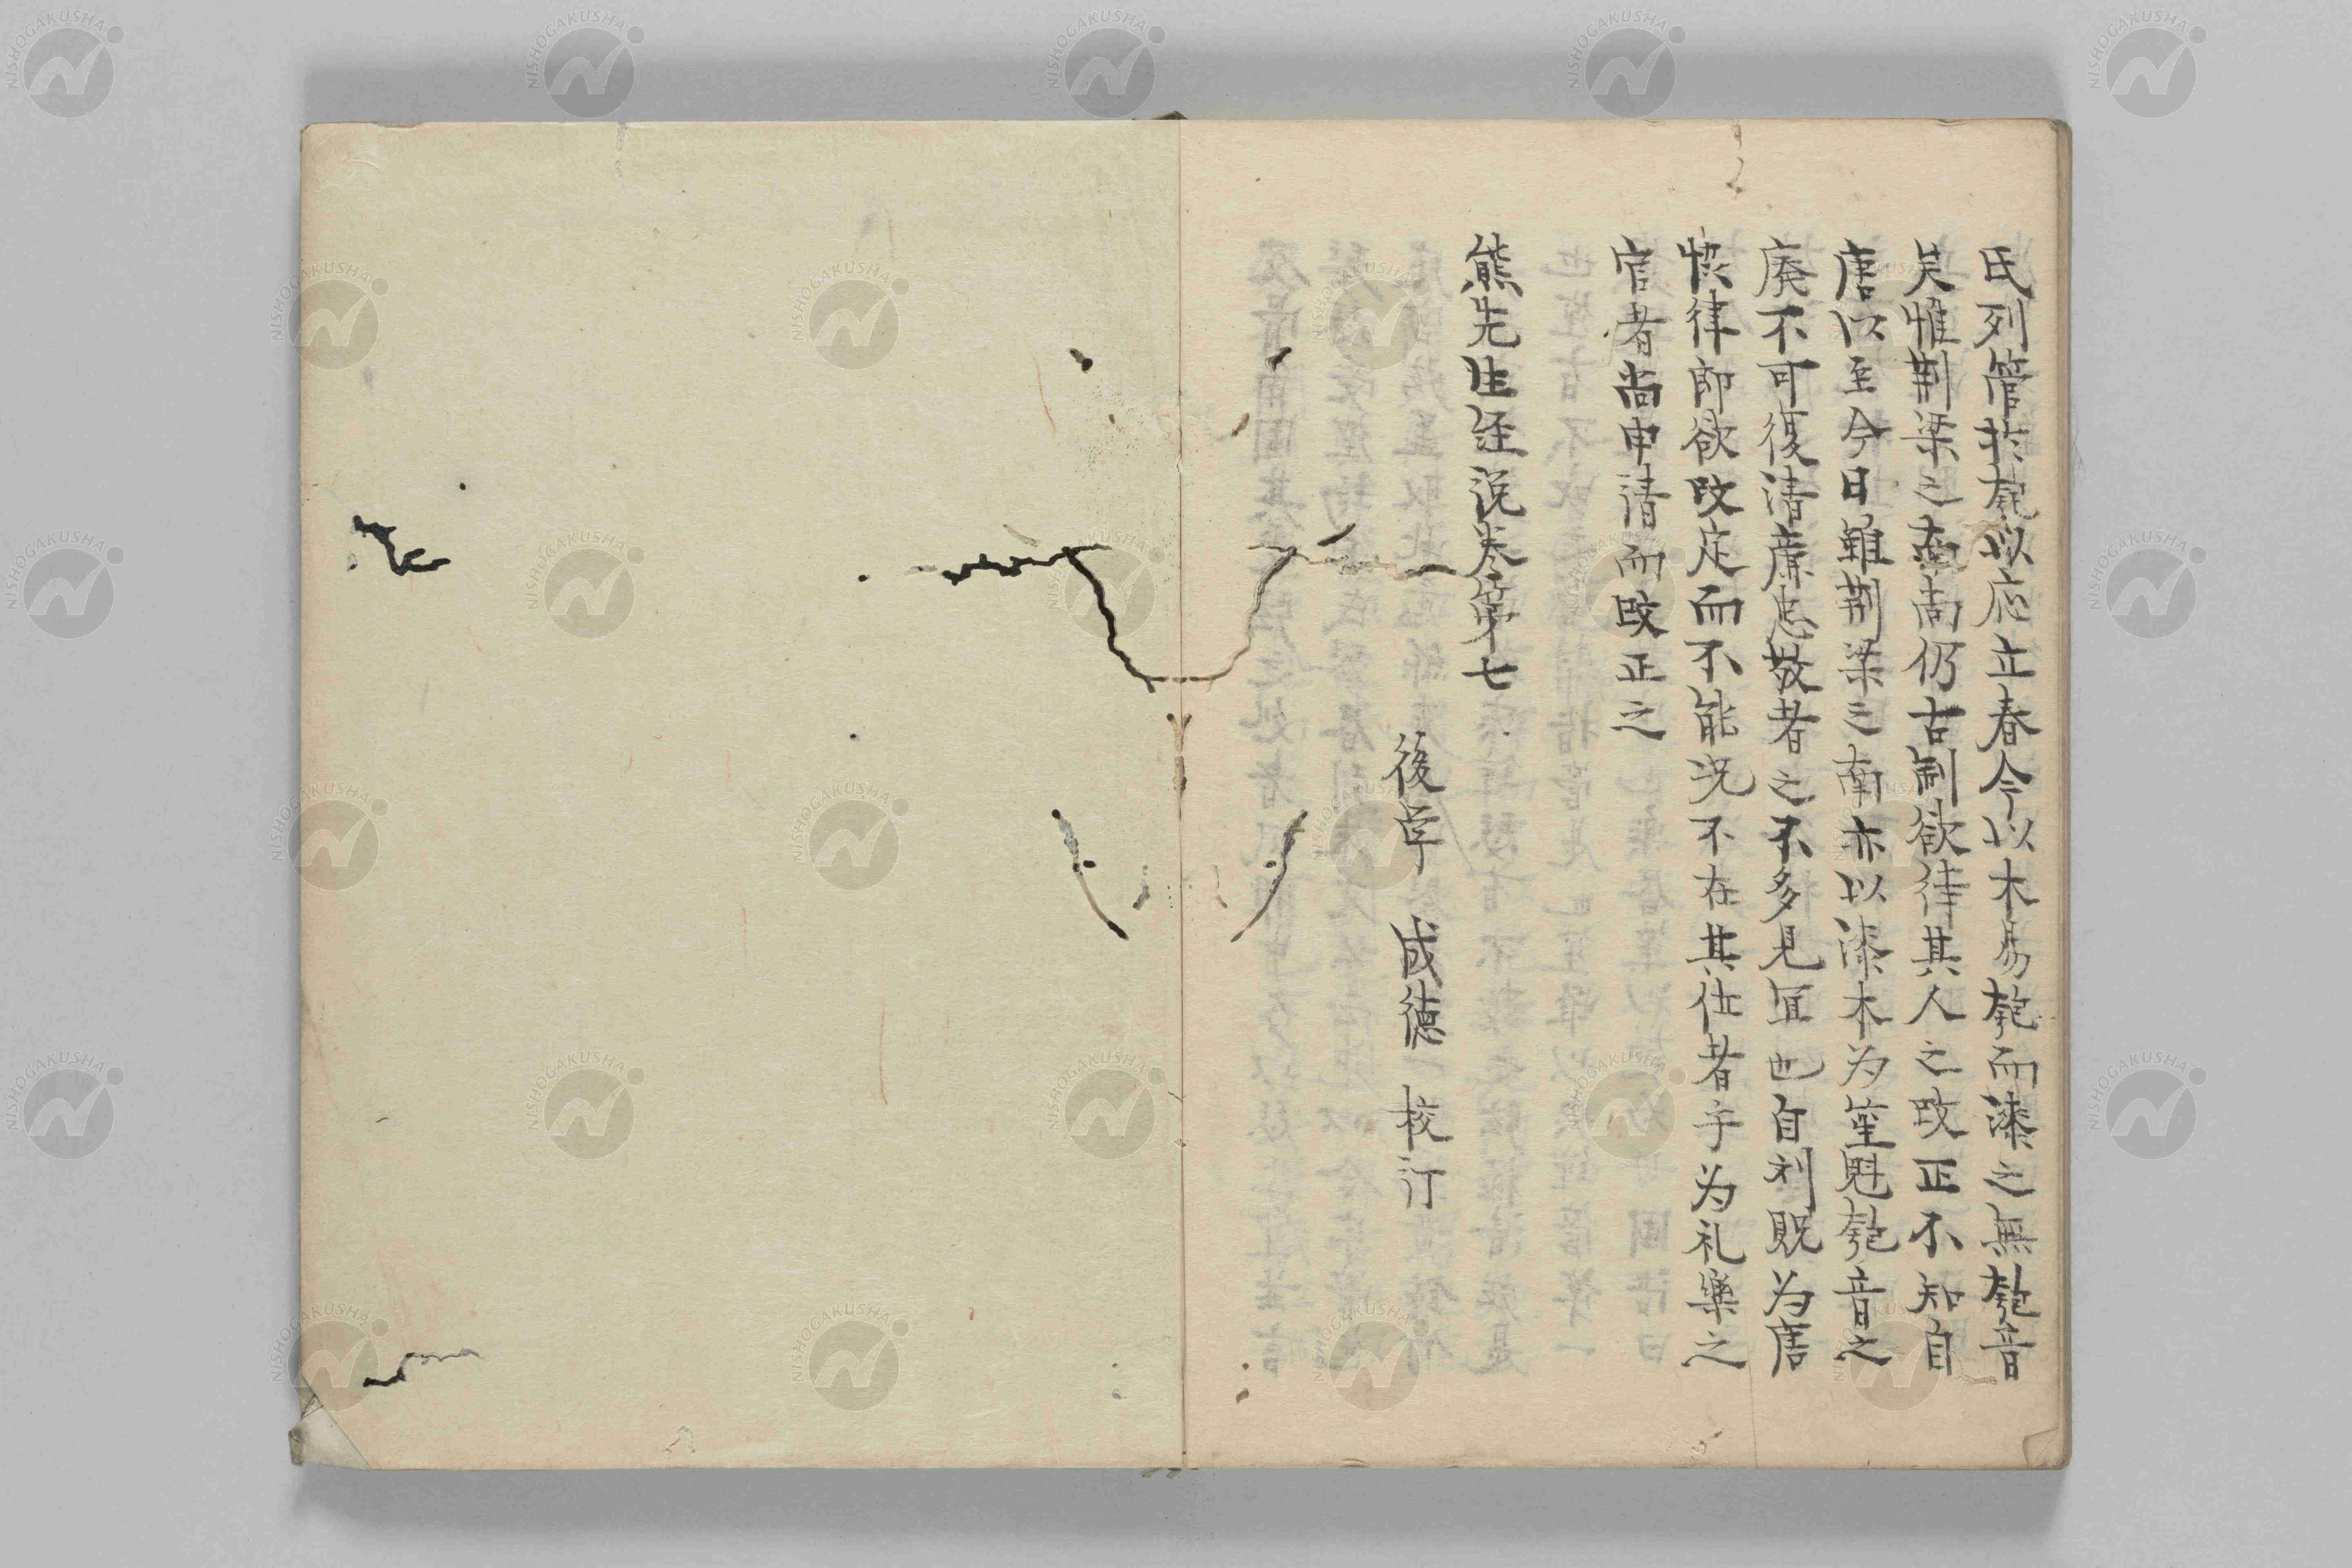 氏列管於匏以应立春今以木易匏而漆之無匏音
矣惟荆梁之南尚仍古制欲待其人之改正不知自
唐以至今日雖荆梁之南亦以漆木为笙匏音之
廃不可復清廉忠敬者之不多見宜也自刘既为唐
懷律郎欲改定而不能况不在其位者乎为礼樂之
官者尚申请而改正之
熊先生经说卷第七
後学 成德 校订
NISHOGAKUSHA